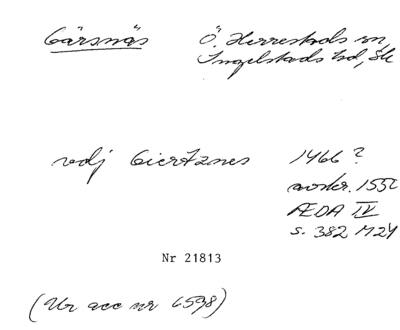 Gärsnäs Ö. Herrestads sn,
Ingelstads hd, Sk
vdj Giertznes 1466 ?
avskr. 1550
ÆDA IV
s. 382 M24
Nr 21813
(Ur acc nr 6598)